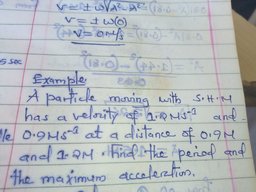 V = ± ω√A² - A²
V = ± ω(0)
V = 0m/s
5 sec
Example
A particle moving with S.H.M
has a velocity of 1.2ms⁻¹ and
0.9ms⁻¹ at a distance of 0.9M
and 1.2M. find the period and
the maximum acceleration.